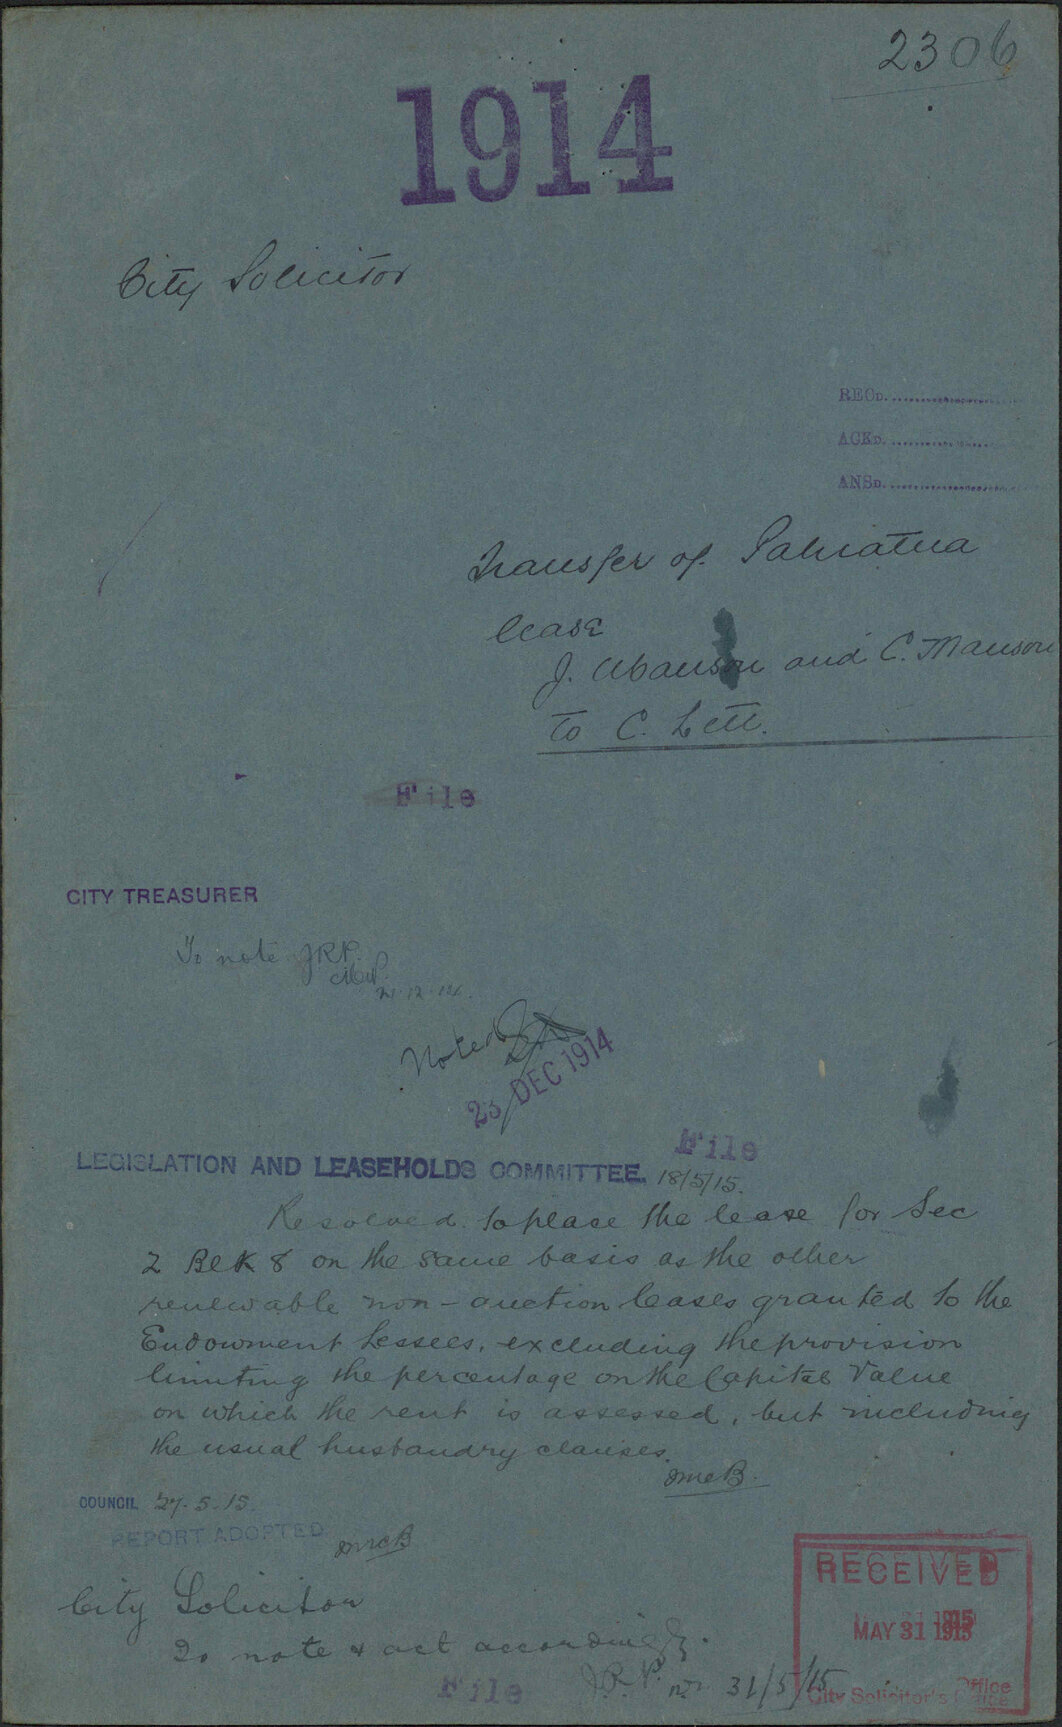 2306
1914
City Solicitor
RECD.
ACKD.
ANSD.
Transfer of Pahiatua
lease
J. Manson and C. Manson
to C. Lett.
File
CITY TREASURER
To note JRP.
21.12.14.
Noted
23 DEC 1914
File
LEGISLATION AND LEASEHOLDS COMMITTEE. 18/5/15.
Resolved. to place the lease for Sec
2 Blk 8 on the same basis as the other
renewable non-auction leases granted to the
Endowment Lessees, excluding the provision
limiting the percentage on the Capital Value
on which the rent is assessed, but including
the usual husbandry clauses.
JMcB.
COUNCIL 27.5.15.
REPORT ADOPTED
JMcB
City Solicitor
To note & act accordingly.
J.R.P. 31/5/15
File
RECEIVED
MAY 31 1915
City Solicitor's Office